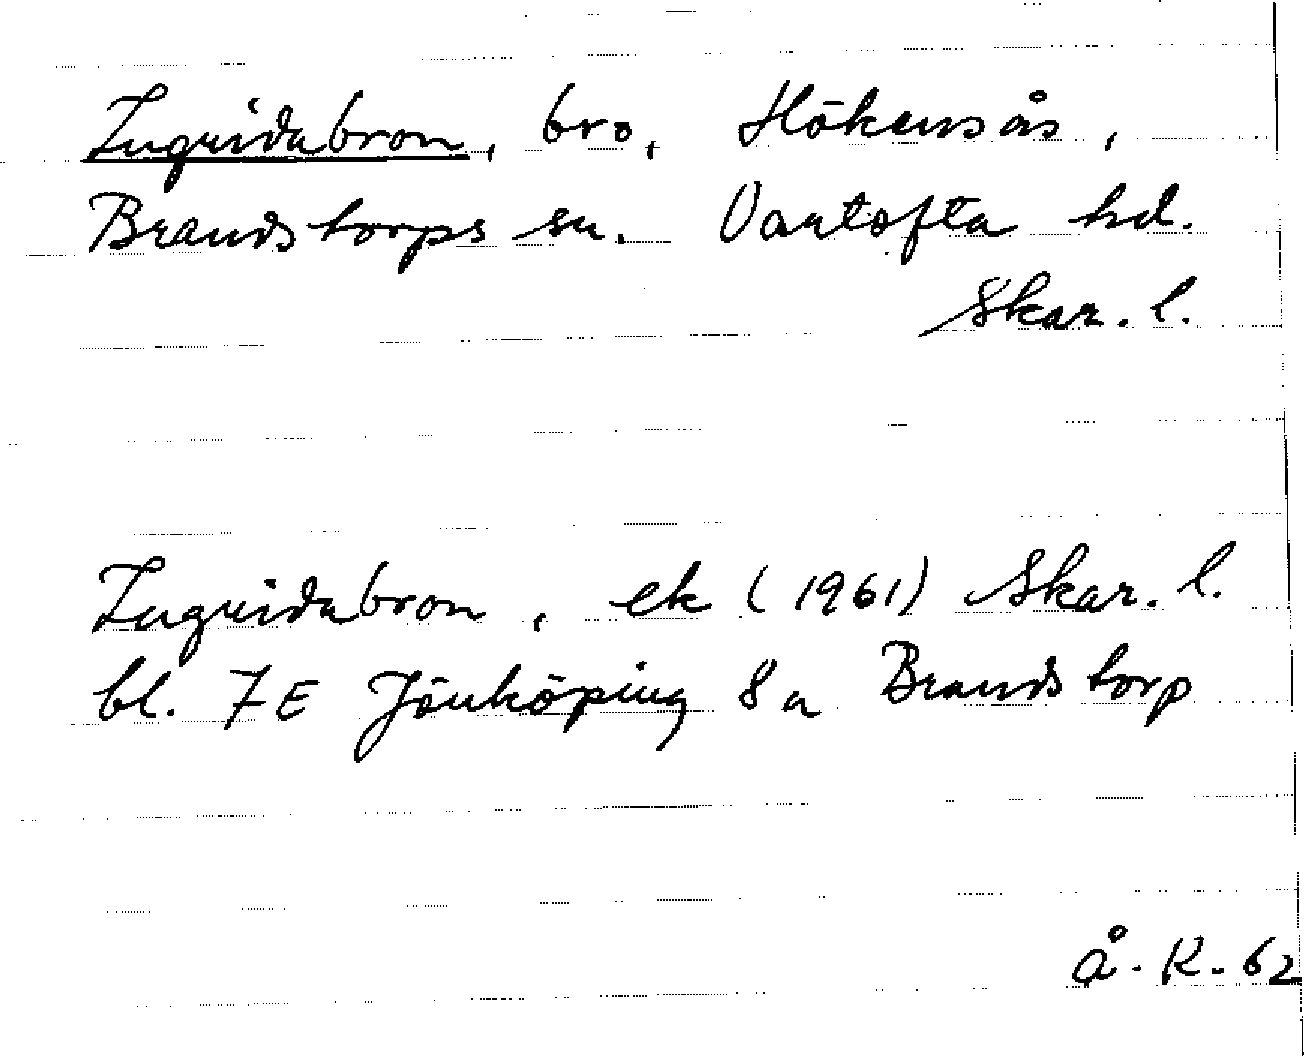 Ingridabron, bro, Hökensås,
Brandstorps sn. Vartofta hd.
Skar. l.
Ingridabron, ek (1961) Skar. l.
bl. 7E Jönköping 8a Brandstorp
Å. K. 62